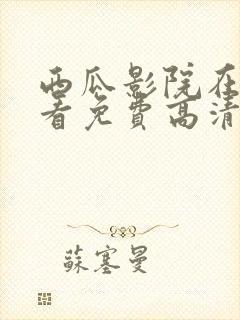 西瓜影院在
看免費高清
蘇塞曼